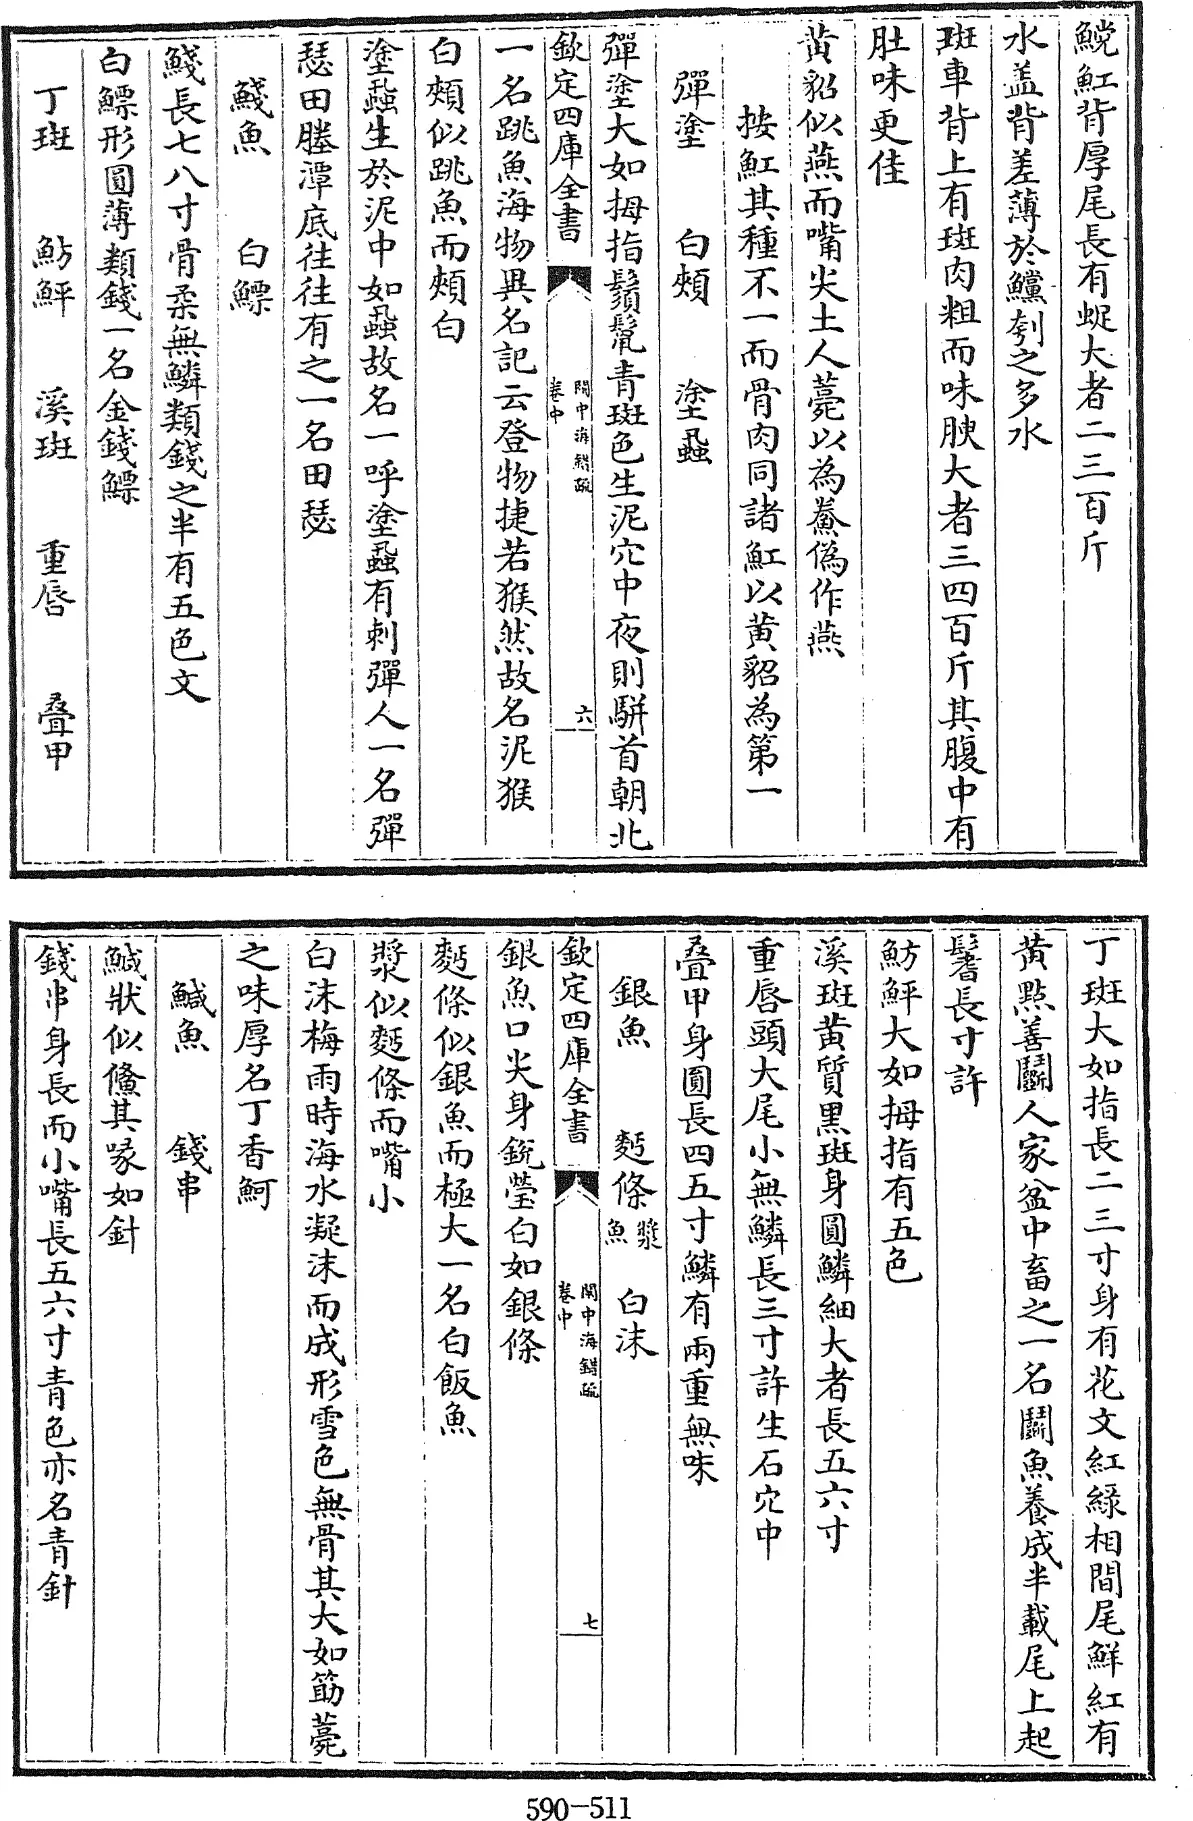 鯇魟背厚尾長有蜒大者二三百斤
水盖背差薄於鱷刳之多水
斑車背上有斑肉粗而味腴大者三四百斤其腹中有
肚味更佳
黄貂似燕而嘴尖土人薨以為鮝偽作燕
按魟其種不一而骨肉同諸魟以黄貂為第一
彈塗 白頰 塗蝨
彈塗大如拇指鬚鬣青斑色生泥穴中夜則駢首朝北
欽定四庫全書 閩中海錯疏 卷中 六
一名跳魚海物異名記云登物捷若猴然故名泥猴
白頰似跳魚而頰白
塗蝨生於泥中如蝨故名一呼塗蝨有刺彈人一名彈
瑟田塍潭底往往有之一名田瑟
鯎魚 白鰾
鯎長七八寸骨柔無鱗類錢之半有五色文
白鰾形圓薄類錢一名金錢鰾
丁斑 魴鮃 溪斑 重唇 叠甲
丁斑大如指長二三寸身有花文紅綠相間尾鮮紅有
黄點善鬭人家盆中畜之一名鬭魚養成半載尾上起
鬐長寸許
魴鮃大如拇指有五色
溪斑黄質黑斑身圓鱗細大者長五六寸
重唇頭大尾小無鱗長三寸許生石穴中
叠甲身圓長四五寸鱗有兩重無味
銀魚 麫條 漿魚 白沫
欽定四庫全書 閩中海錯疏 卷中 七
銀魚口尖身銳瑩白如銀條
麫條似銀魚而極大一名白飯魚
漿似麫條而嘴小
白沫梅雨時海水凝沫而成形雪色無骨其大如筯薨
之味厚名丁香魺
鰔魚 錢串
鰔狀似鱠其喙如針
錢串身長而小嘴長五六寸青色亦名青針
590-511